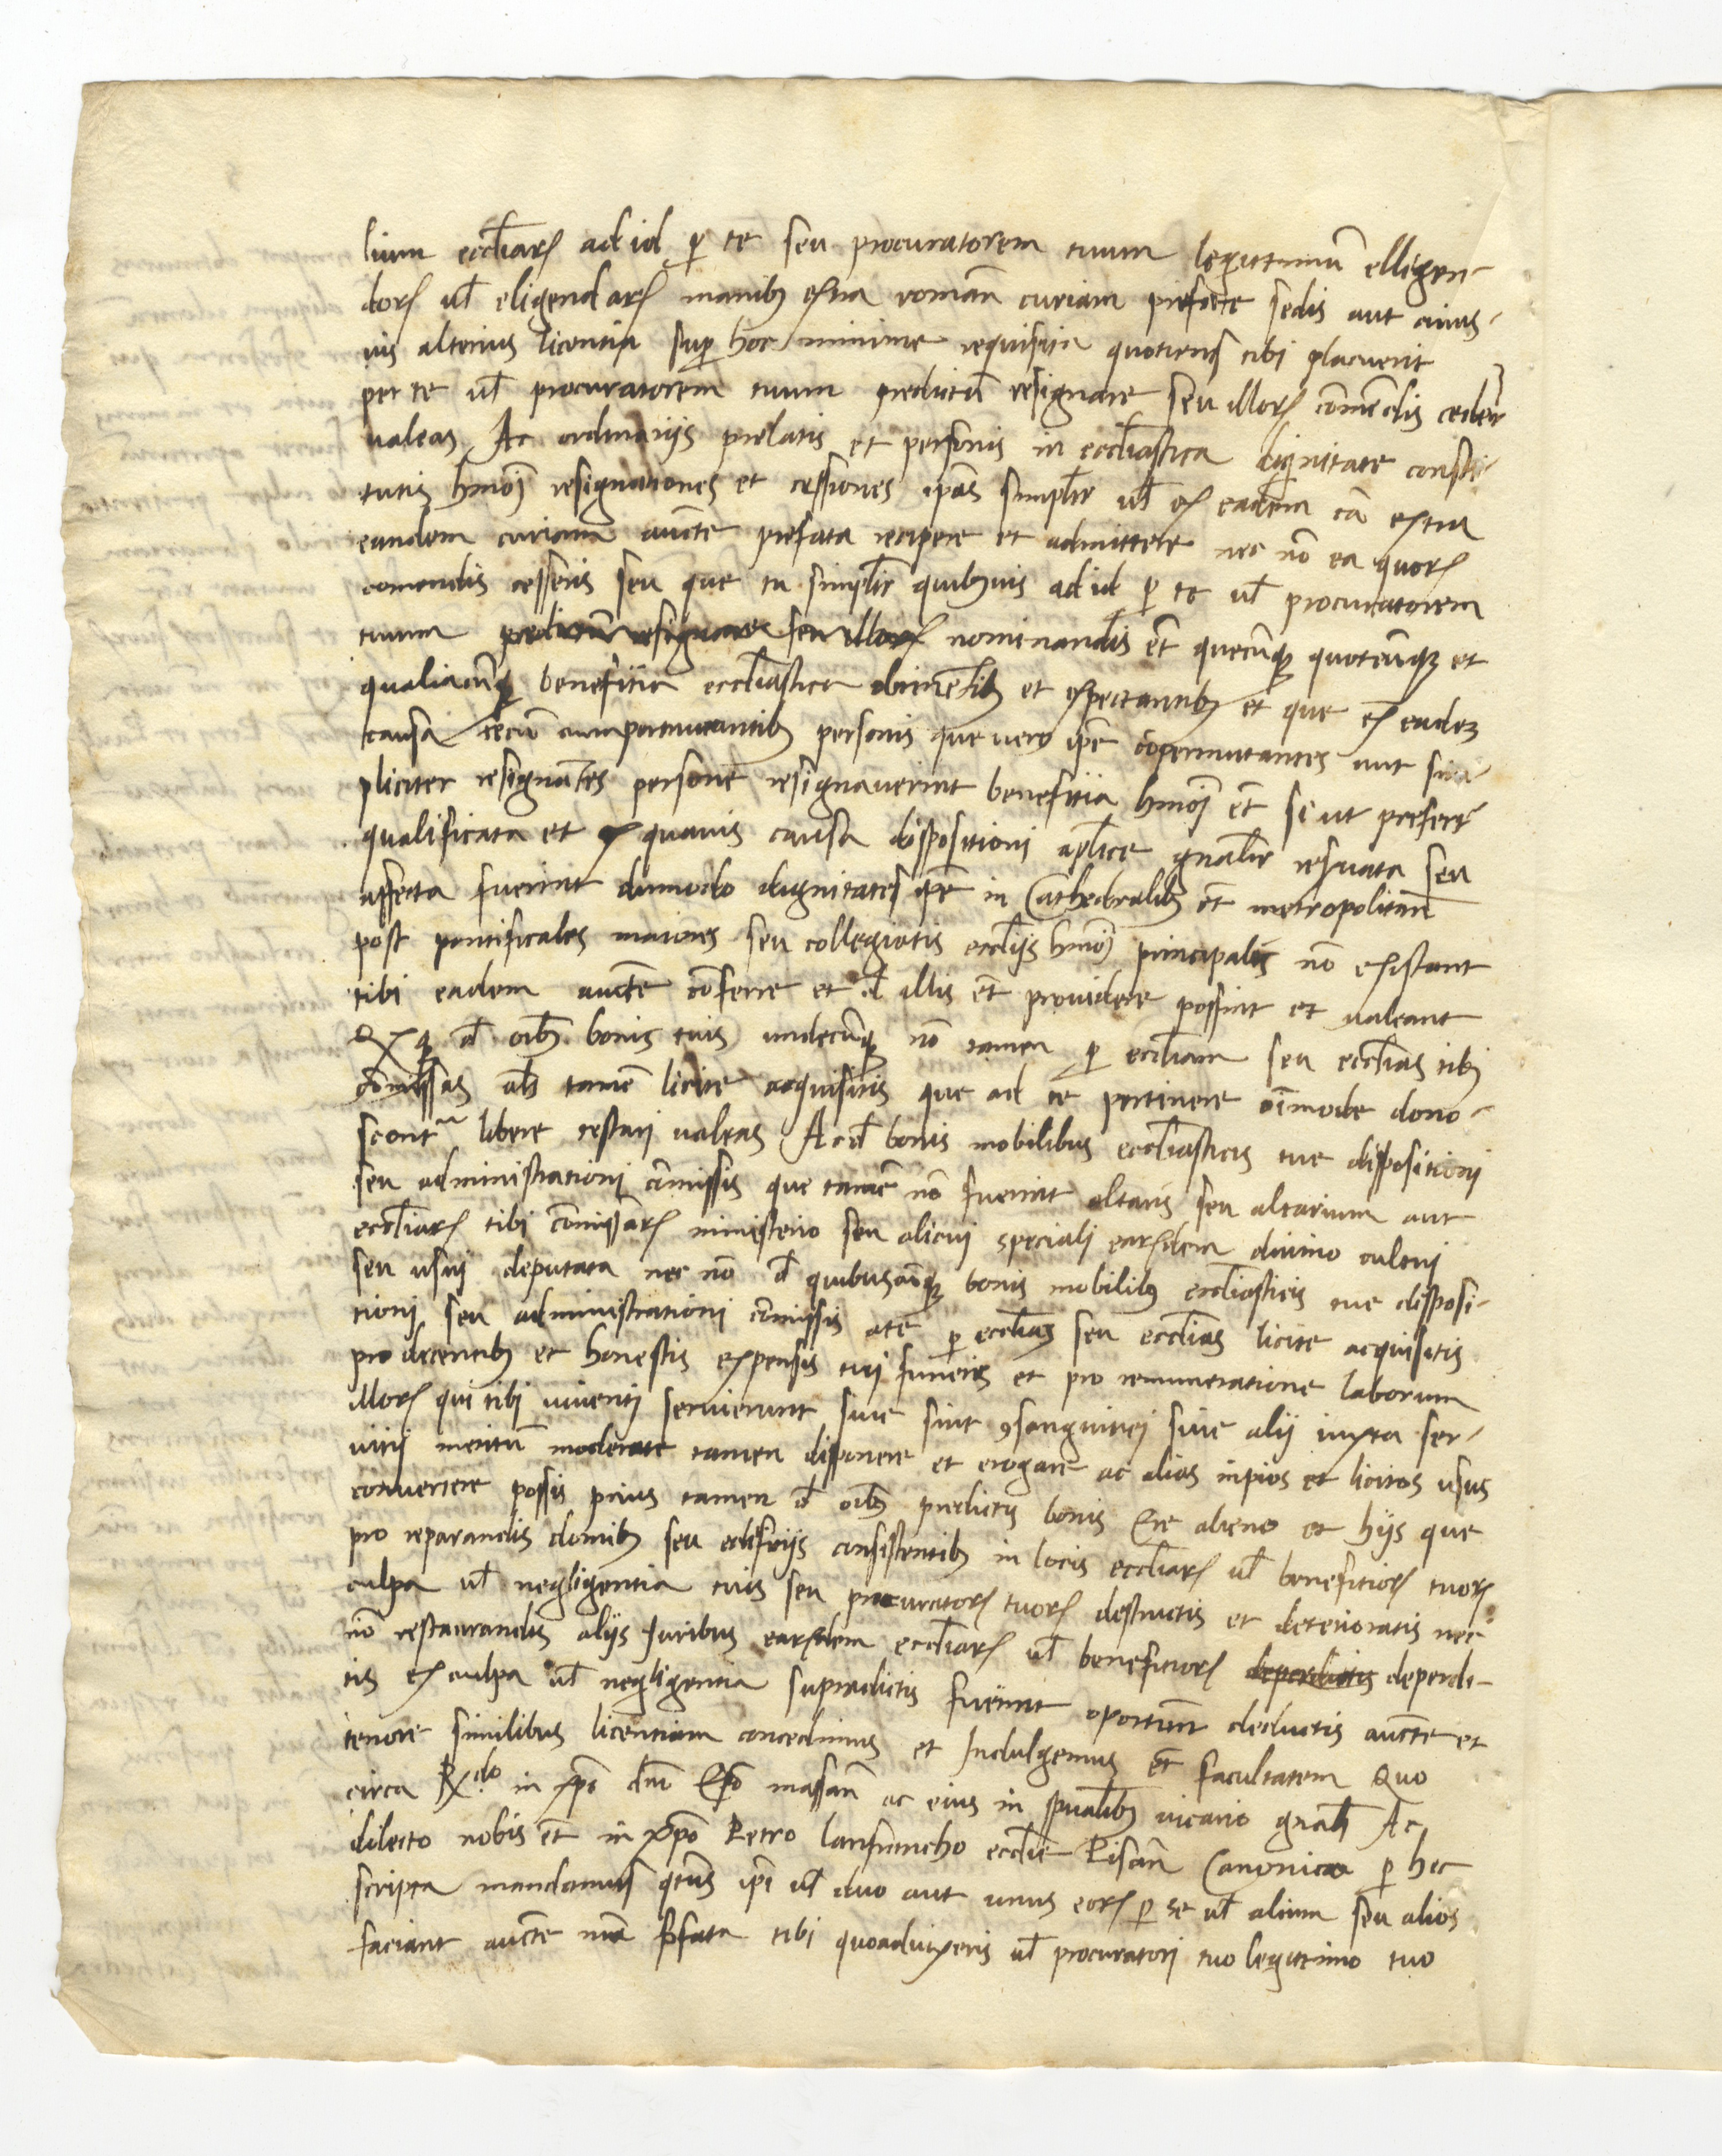 lium eccl̄iarꝝ ad id ꝑ te seu procuratorem tuum legittimū elligen-
dorꝝ ul̄ eligendarꝝ manibꝫ extra romanā curiam prefate sedis aut cuius-
uis alterius licentia suꝑ hoc minime requisita quotiens tibi placuerit
per te ul̄ procuratorem tuum predictū resignare seu illorꝝ com̄endis cedere
ualeas Ac ordinarijs prelatis et personis in eccl̄iastica dignitate consti-
tutis hmōj resignationes et cessiones ip̄as simplr̄ ul̄ ex eadem cā extra
eandem curiam aucte prefata recipere et admittere nec nō ea quorꝝ
comendis cesseris seu que tu simplr̄ quibꝫuis ad id ꝑ te ul̄ procuratorem
tuum predictū resignare seu illorꝝ nominandis et̄ quecūqꝫ quotcūqꝫ et
qualiacūqꝫ benefitia eccl̄iastica obtinētibꝫ et expectantibꝫ et que ex eadeꝫ
causa tecū cumpermutantibꝫ personis que uero ip̄e cōpermutantes aut sim-
pliciter resignātes persone resignauerint benefitia hmōj et̄ si ut prefert̄
qualificata et ex quauis causa dispositioni aplice gnālr̄ reseruata seu
affecta fuerint dummodo dignitates ip̄e in Cathedralibꝫ et̄ metropolitanā
post pontificales maiores seu collegiatis eccl̄ijs hmōj principales nō existant
tibi eadem aucte cōferre et d̄ illis et̄ prouidere possint et ualeant
Qꝫ d̄ oībꝫ bonis tuis undecūqꝫ nō tamen ꝑ eccl̄iam seu eccl̄ias tibi
cōmissas als̄ tamē licite acquisitis que ad te pertinere oīmode dono-
scont~ libere testari ualeas Ac d̄ bonis mobilibus eccl̄iasticis tue dispositioni
seu administrationi cōmissis que tamē nō fuerint altaris seu altarium aut
eccl̄iarꝝ tibi cōmissarꝝ ministerio seu alicui speciali earꝝdem diuino cultui
seu usui deputata nec nō d̄ quibuscūqꝫ bonis mobilibꝫ eccl̄iasticis tue disposi-
tioni seu administrationi cōmissis a te ꝑ eccl̄ias seu eccl̄ias licite acquisitis
pro decentibꝫ et honestis expensis tui funeris et pro remuneratione laborum
illorꝝ qui tibi uiuenti seruierunt siue sint ꝯsanguinei siue alij iuxta ser-
uitij meritū moderate tamen disponere et erogare ac alias in pios et licitos usus
conuertere possis prius tamen d̄ oībꝫ predictis bonis Ere alieno et hijs que
pro reparandis domibꝫ seu edefitijs consistentibꝫ in locis eccl̄iarꝝ ul̄ benefitiorꝝ tuorꝝ
culpa ul̄ negligentia tuis seu procuratorꝝ tuorꝝ destructis et deterioratis nec
nō restaurandis alijs Juribus earꝝdem eccl̄iarꝝ ul̄ benefitiorꝝ deperdictis deperdi-
tis ex culpa ul̄ negligentia supradictis fuerint oportunā deductis aucte et
tenore similibus licentiam concedimus et Indulgemus et̄ facultatem Quo
circa Rdo in xp̄o dn̄o Ep̄o massanā ac eius in spūalibꝫ uicario gnāli Ac
dilecto nobis et̄ in xp̄o Petro lanfrancho eccl̄ie Pisanā Canonico ꝑ hec
scripta mandamus qtūs ip̄i ul̄ duo aut unus eorꝝ ꝑ se ul̄ alium seu alios
faciant aucte nrā p̄fata tibi quoaduixeris ul̄ procuratori tuo legittimo tuo